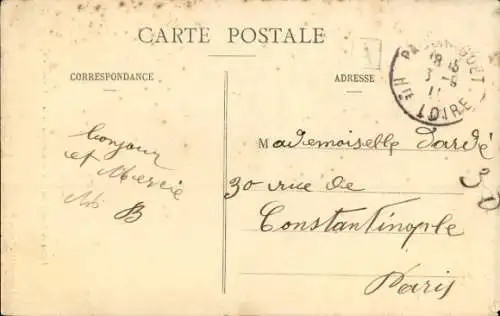 CARTE POSTALE
CORRESPONDANCE
ADRESSE
Bonjour
et Mercie
B
Mademoiselle Dardé
30 rue de
Constantinople
Paris
18 15
3 - 8
11
Hte LOIRE
30